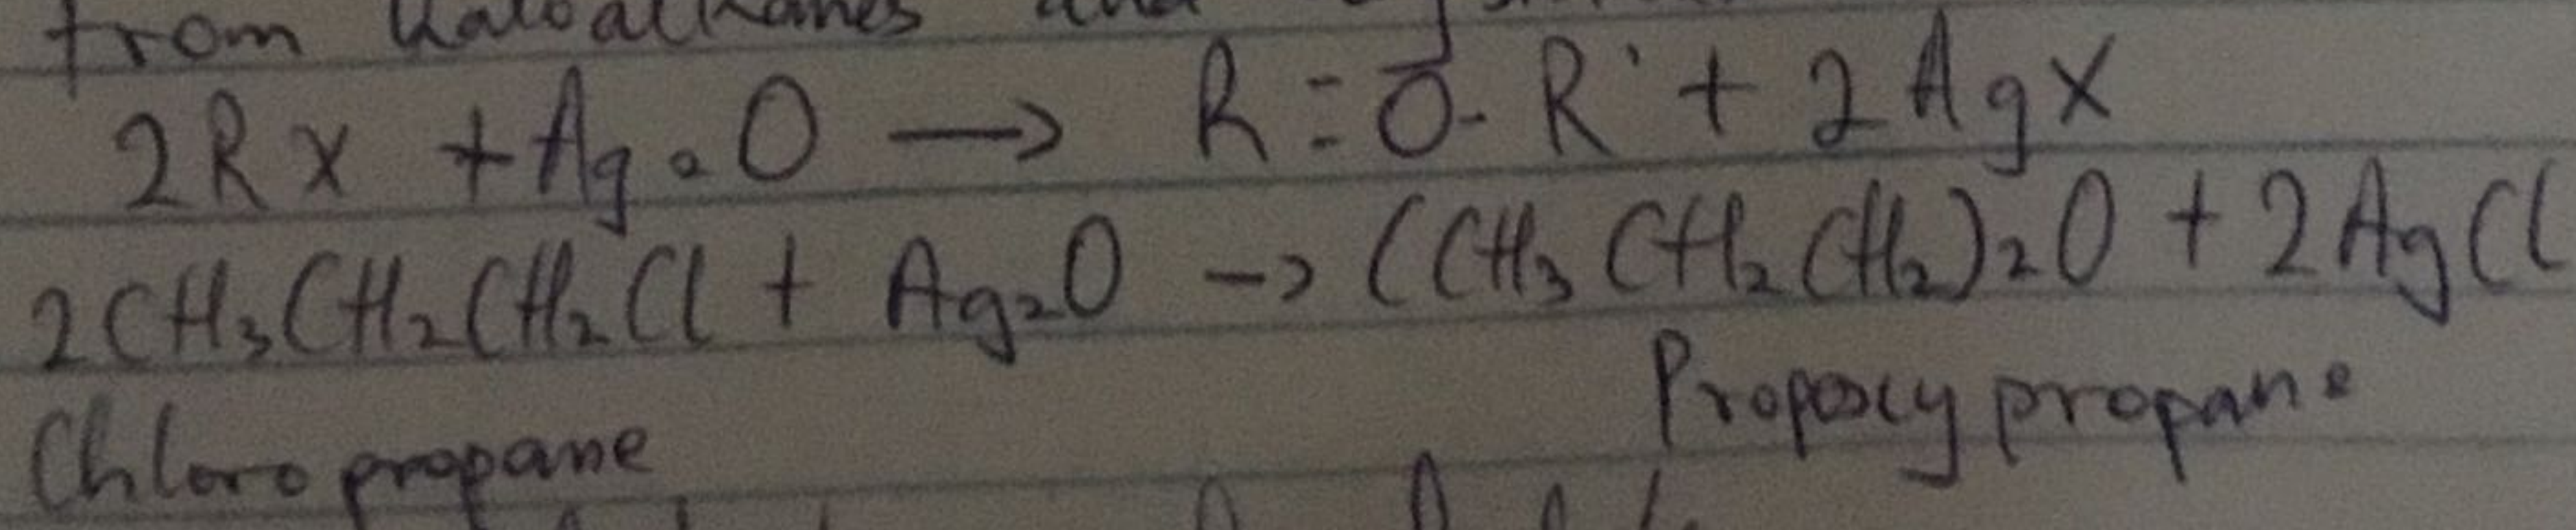 from haloalkanes and
2RX + Ag₂O → R-O-R' + 2AgX
2CH₃CH₂CH₂Cl + Ag₂O → (CH₃CH₂CH₂)₂O + 2AgCl
Chloropropane Propoxypropane